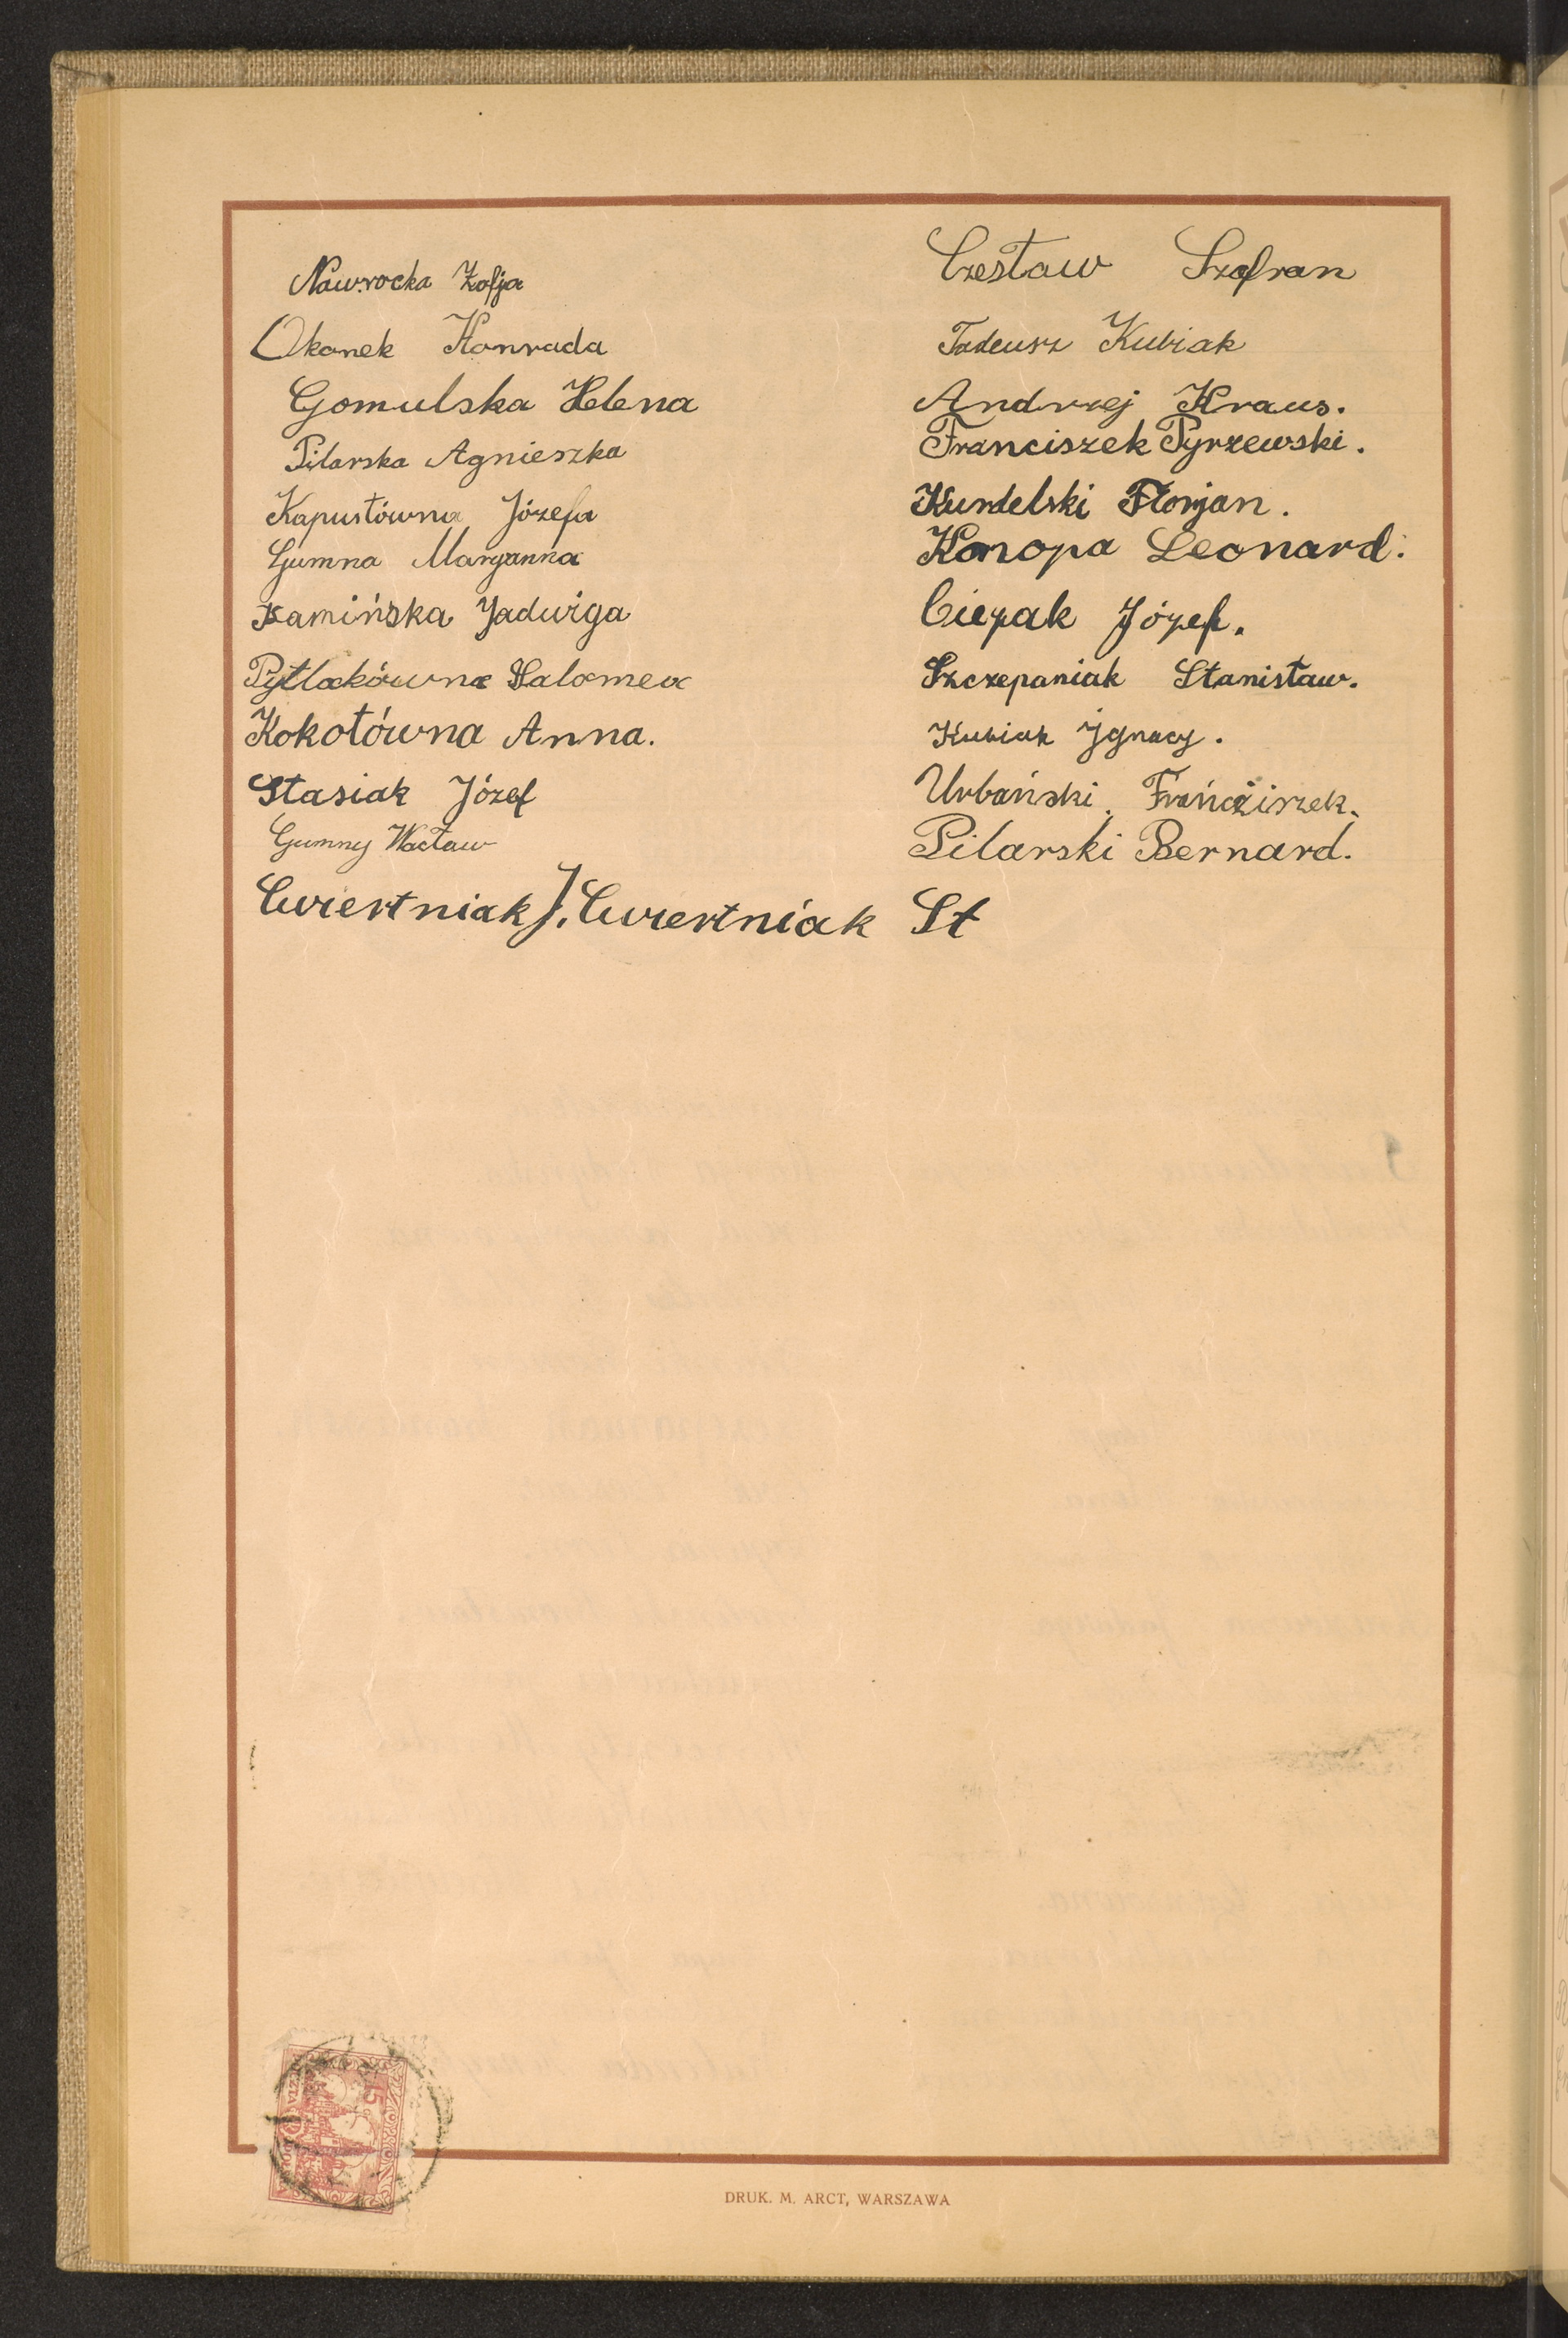 Nawrocka Zofja
Okonek Konrada
Gomulska Helena
Pilarska Agnieszka
Kapustówna Józefa
Gumna Maryanna
Kamińska Jadwiga
Pytlakówna Salomea
Kokotówna Anna.
Stasiak Józef
Gumny Wacław
Cwiertniak J. Cwiertniak St
Czesław Szafran
Tadeusz Kubiak
Andrzej Kraus.
Franciszek Pyrzewski.
Kurdelski Florjan.
Konopa Leonard.
Ciepak Józef.
Szczepaniak Stanisław.
Kubiak Jgnacy.
Urbański Franciszek.
Pilarski Bernard.
15
DRUK. M. ARCT, WARSZAWA